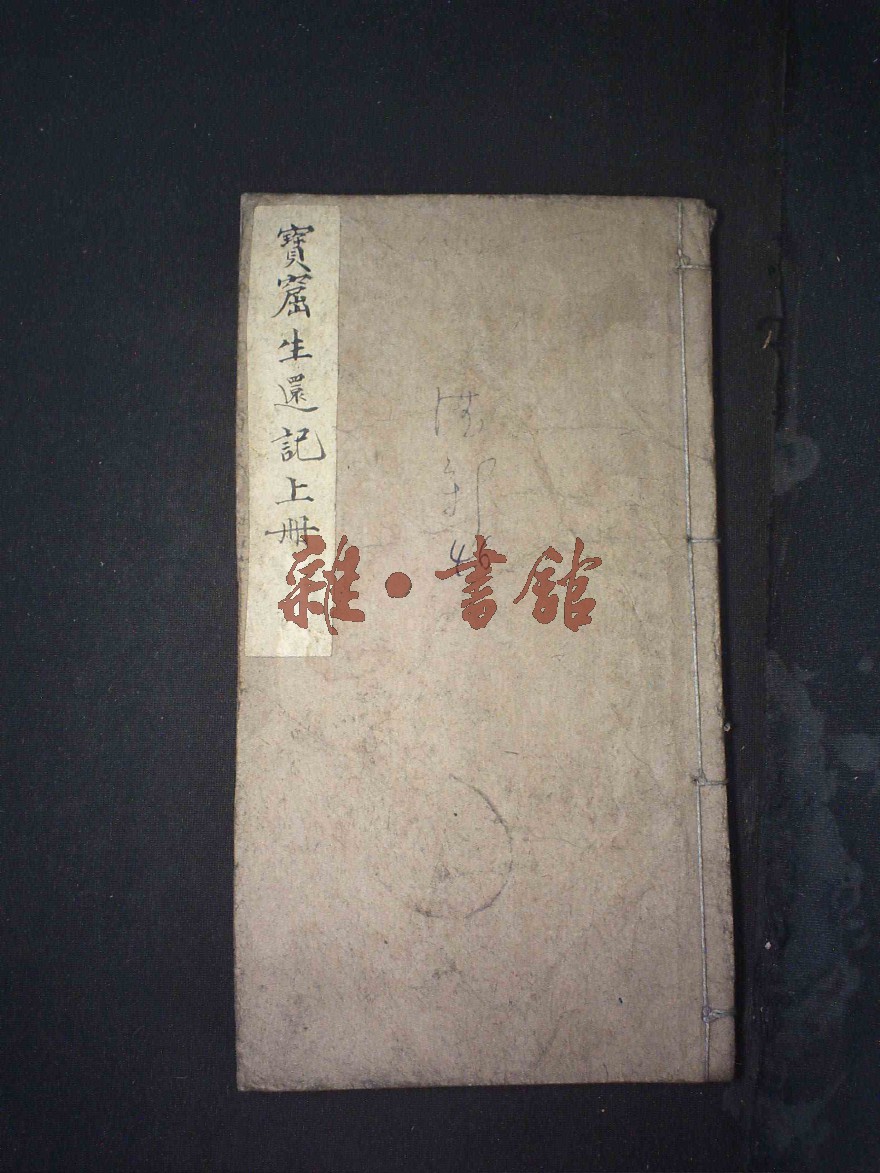 寶窟生還記上冊
46
雜·書館